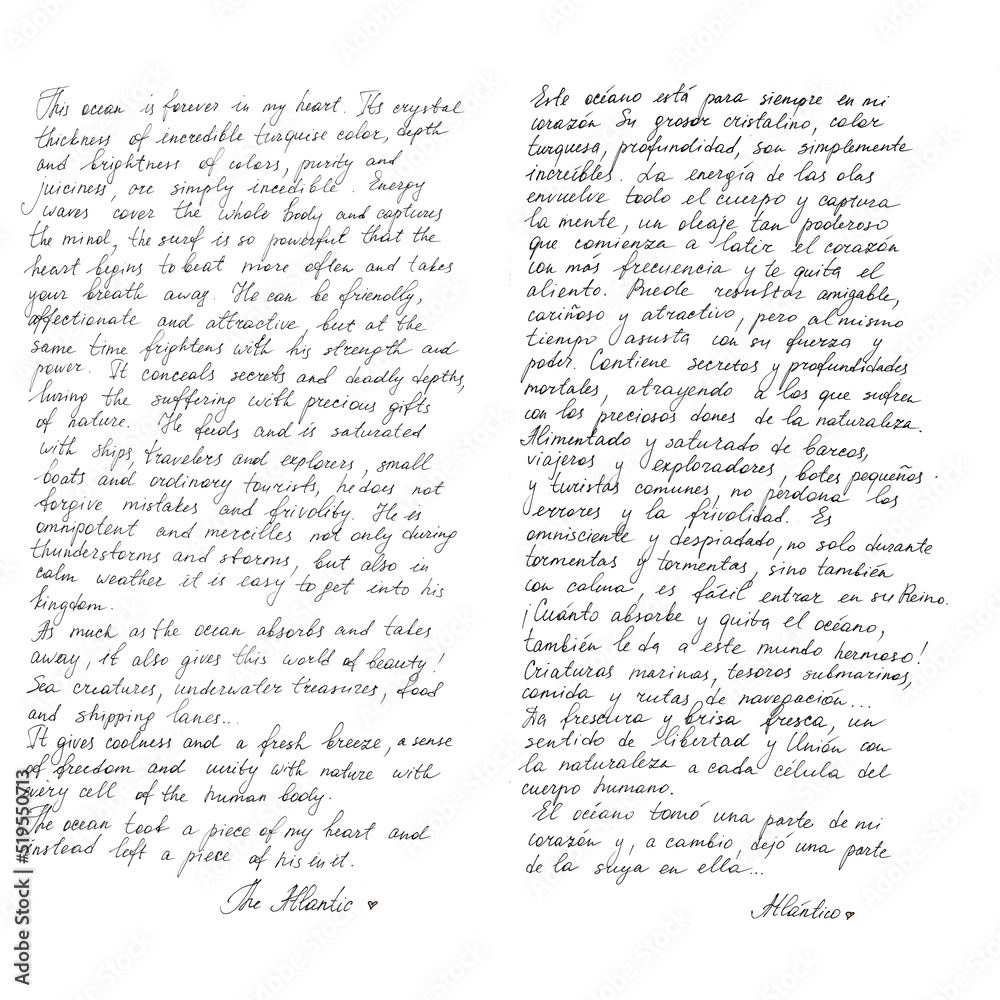 This ocean is forever in my heart. Its crystal
thickness of incredible turquise color, depth
and brightness of colors, purity and
juiciness, are simply incedible. Energy
waves cover the whole body and captures
the mind, the surf is so powerful that the
heart begins to beat more often and takes
your breath away. He can be friendly,
affectionate and attractive, but at the
same time frightens with his strength and
power. It conceals secrets and deadly depths,
luring the suffering with precious gifts
of nature. He feeds and is saturated
with ships, travelers and explorers, small
boats and ordinary tourists, he does not
forgive mistakes and frivolity. He is
omnipotent and mercilles not only during
thunderstorms and storms, but also in
calm weather it is easy to get into his
kingdom.
As much as the ocean absorbs and takes
away, it also gives this world of beauty!
Sea creatures, underwater treasures, food
and shipping lanes...
It gives coolness and a fresh breeze, a sense
of freedom and unity with nature with
every cell of the human body.
The ocean took a piece of my heart and
instead left a piece of his in it.
The Atlantic
Este océano está para siempre en mi
corazón Su grosor cristalino, color
turquesa, profundidad, son simplemente
increíbles. La energía de las olas
envuelve todo el cuerpo y captura
la mente, un oleaje tan poderoso
que comienza a latir el corazón
con más frecuencia y te quita el
aliento. Puede resultar amigable,
cariñoso y atractivo, pero al mismo
tiempo asusta con su fuerza y
poder. Contiene secretos y profundidades
mortales, atrayendo a los que sufren
con los preciosos dones de la naturaleza.
Alimentado y saturado de barcos,
viajeros y exploradores, botes pequeños
y turistas comunes, no perdona los
errores y la frivolidad. Es
omnisciente y despiadado, no solo durante
tormentas y tormentas, sino también
con calma, es fácil entrar en su Reino.
¡Cuánto absorbe y quita el océano,
también le da a este mundo hermoso!
Criaturas marinas, tesoros submarinos,
comida y rutas de navegación...
La frescura y brisa fresca, un
sentido de libertad y Unión con
la naturaleza a cada célula del
cuerpo humano.
El océano tomó una parte de mi
corazón y, a cambio, dejó una parte
de la suya en ella...
Atlántico
Adobe Stock | #519550713